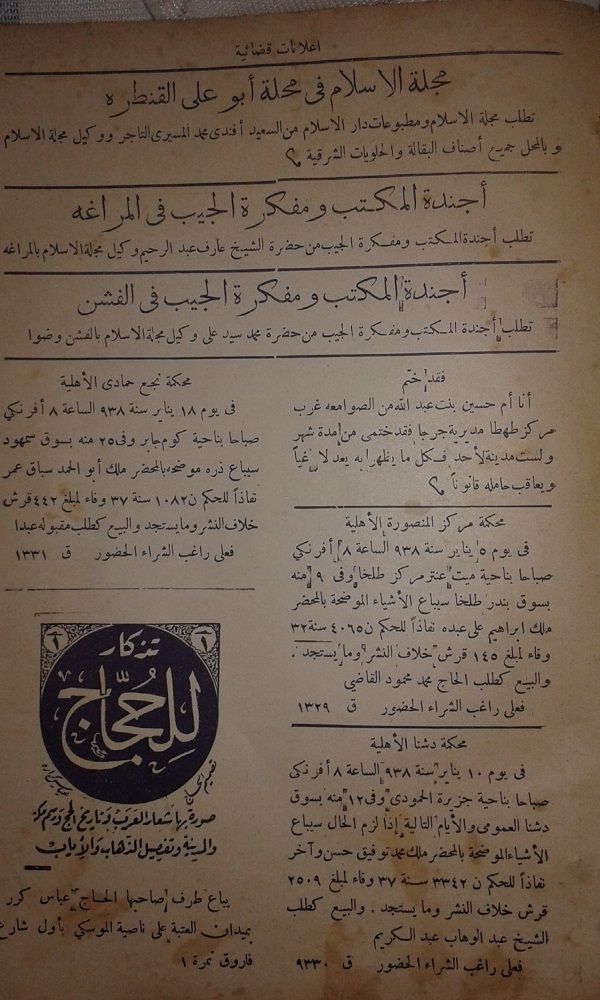 اعلانات قضائية
مجلة الاسلام فى محلة أبو على القنطره
تطلب مجلة الاسلام ومطبوعات دار الاسلام من السعيد أفندى محمد المسيرى التاجر ووكيل مجلة الاسلام
وبالمحل جميع أصناف البقالة والحلويات الشرقية
أجندة المكتب ومفكرة الجيب فى المراغه
تطلب أجندة المكتب ومفكرة الجيب من حضرة الشيخ عارف عبد الرحيم وكيل مجلة الاسلام بالمراغه
أجندة المكتب ومفكرة الجيب فى الفشن
تطلب أجندة المكتب ومفكرة الجيب من حضرة محمد سيد على وكيل مجلة الاسلام بالفشن وضوا
فقد ختم
أنا أم حسين بنت عبد الله من الصوامعه غرب
مركز طهطا مديرية جرجا فقد ختمى من مدة شهر
ولست مدينة لأحد فكل ما يظهر به يعد لاغياً
ويعاقب حامله قانوناً
محكمة مركز المنصورة الأهلية
فى يوم ٥ يناير سنة ٩٣٨ الساعة ٨ أفرنكى
صباحا بناحية ميت عنتر مركز طلخا وفى ٩ منه
بسوق بندر طلخا سيباع الأشياء الموضحة بالمحضر
ملك ابراهيم على عبده نفاذاً للحكم ن ٤٠٦٥ سنة ٣٢
وفاء لمبلغ ١٤٥ قرش خلاف النشر وما يستجد .
والبيع كطلب الحاج محمد محمود القاضي
فعلى راغب الشراء الحضور ق ١٣٢٩
محكمة دشنا الأهلية
فى يوم ١٠ يناير سنة ٩٣٨ الساعة ٨ أفرنكى
صباحا بناحية جزيرة الحمودى وفى ١٢ منه بسوق
دشنا العمومى والأيام التالية إذا لزم الحال سيباع
الأشياء الموضحة بالمحضر ملك محمد توفيق حسن وآخر
نفاذاً للحكم ن ٣٣٤٢ سنة ٣٧ وفاء لمبلغ ٢٥٠٩
قرش خلاف النشر وما يستجد . والبيع كطلب
الشيخ عبد الوهاب عبد الكريم
فعلى راغب الشراء الحضور ق ٩٣٣٠
محكمة نجع حمادى الأهلية
فى يوم ١٨ يناير سنة ٩٣٨ الساعة ٨ أفرنكي
صباحا بناحية كوم جابر وفى ٢٥ منه بسوق سمهود
سيباع ذره موضحه بالمحضر ملك أبو الحمد سباق عمر
نفاذاً للحكم ن ١٠٨٢ سنة ٣٧ وفاء لمبلغ ٤٤٢ قرش
خلاف النشر وما يستجد والبيع كطلب مقبوله عبدا
فعلى راغب الشراء الحضور ق ١٣٣١
تذكار
للحجاج
صورة بها شعار العرب وتاريخ الحج ورسم مكة
والمدينة وتفصيل الذهاب والأياب
يباع طرف صاحبها الحاج عباس كرر
بميدان العتبة على ناصية الموسكي بأول شارع
فاروق نمرة ١